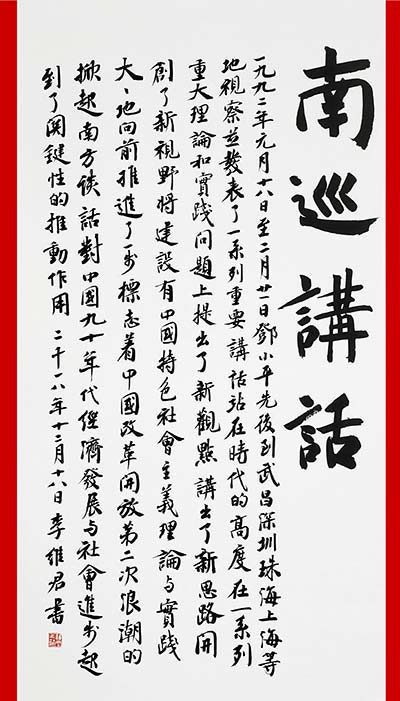 南巡講話
一九九二年元月十八日至二月廿一日鄧小平先後到武昌深圳珠海上海等
地視察並發表了一系列重要講話站在時代的高度在一系列
重大理論和實踐問題上提出了新觀點講出了新思路開
創了新視野將建設有中國特色社會主義理論与實踐
大大地向前推進了一步標志着中國改革開放第二次浪潮的
掀起南方談話對中國九十年代經濟發展与社會進步起
到了関鍵性的推動作用 二千一八年十二月十八日 李維君書